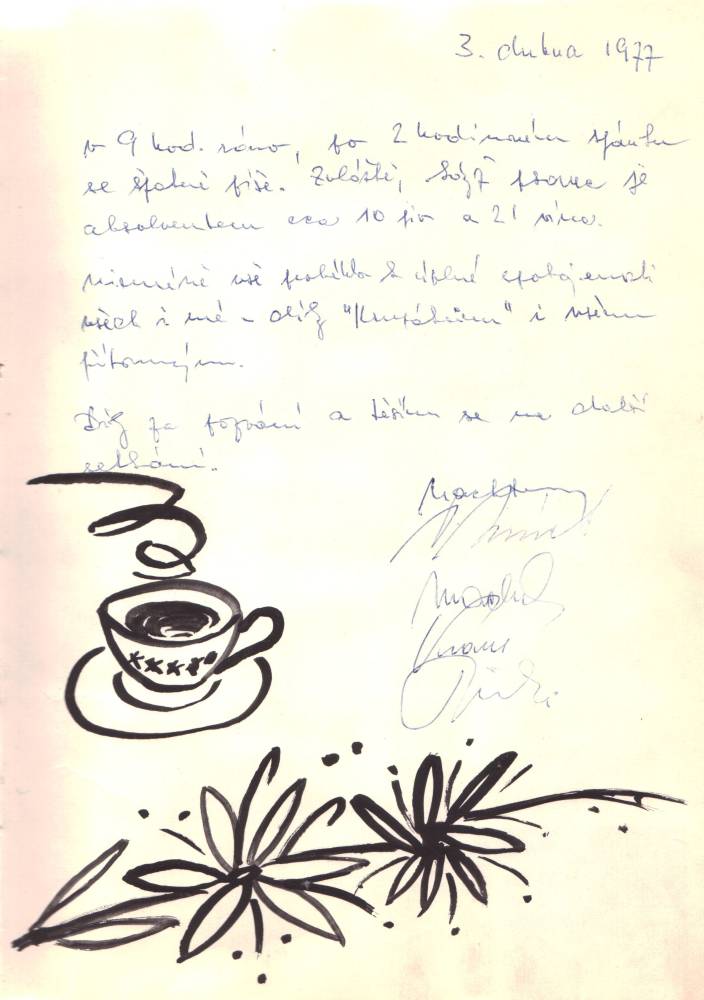 3. dubna 1977
v 9 hod. ráno, po 2 hodinovém spánku
se špatně píše. Zvláště, když pisatel je
absolventem cca 10 piv a 2 l vína.
Nicméně vše proběhlo k úplné spokojenosti
všech i mé – díky " " i všem
přítomným.
Díky za pozvání a těším se na další
setkání.
Kraus